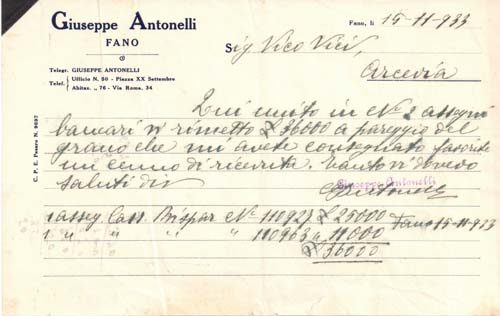 Giuseppe Antonelli
FANO
Telegr. GIUSEPPE ANTONELLI
Telef. Ufficio N. 50 - Piazza XX Settembre
Abitaz. „ 76 - Via Roma, 34
C. P. E. Pesaro N. 9097
Fano, li 15-11-933
Sig Vico Vici,
Arcevia
Qui unito in N° 2 assegni
bancari vi rimetto £ 36000 a pareggio del
grano che mi avete consegnato favorite
un cenno di ricevuta. Tanto vi dovevo
saluti
Giuseppe Antonelli
1 asseg Cass. Rispar N° 110927 £ 25000
Fano 15-11-933
1 „ „ „ „ 110963 „ 11000
£ 36000